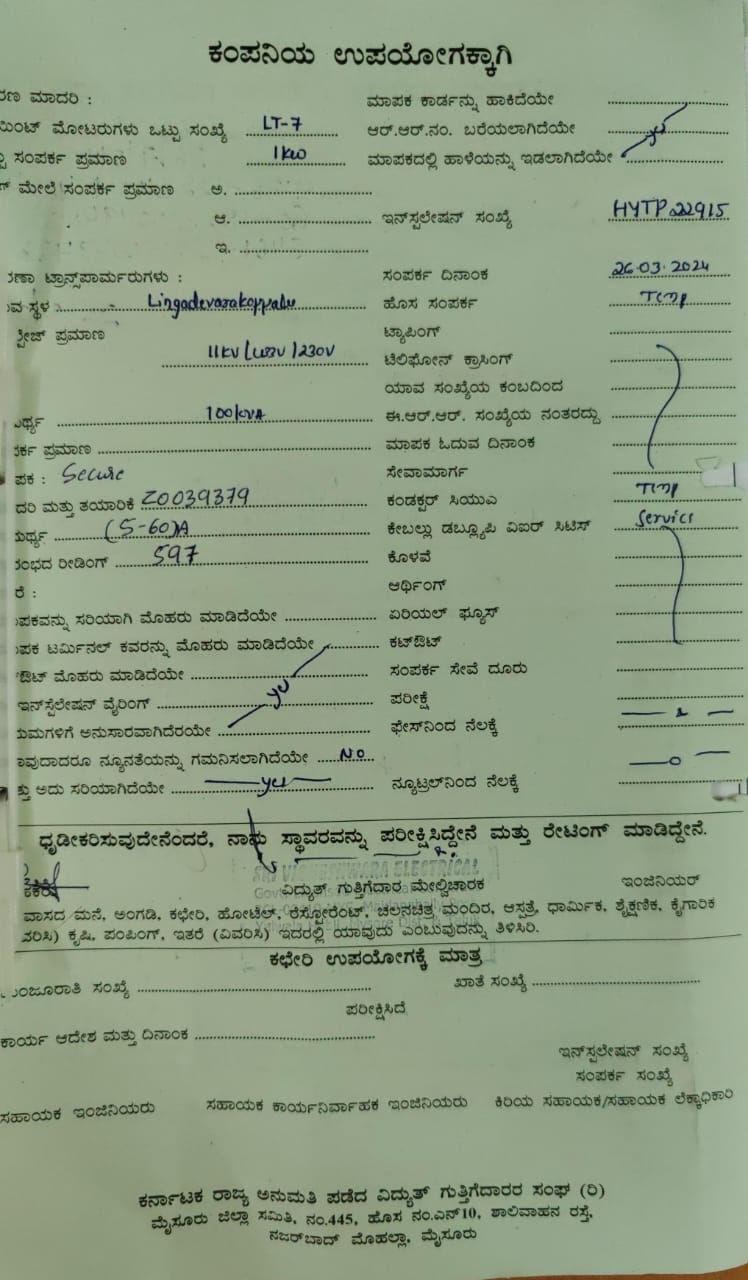 ಕಂಪನಿಯ ಉಪಯೋಗಕ್ಕಾಗಿ
ರಣ ಮಾದರಿ : ಮಾಪಕ ಕಾರ್ಡನ್ನು ಹಾಕಿದೆಯೇ
ಮಿಂಟ್ ಮೋಟರುಗಳು ಒಟ್ಟು ಸಂಖ್ಯೆ LT-7 ಆರ್.ಆರ್.ನಂ. ಬರೆಯಲಾಗಿದೆಯೇ
ಸಂಪರ್ಕ ಪ್ರಮಾಣ 1kw ಮಾಪಕದಲ್ಲಿ ಹಾಳೆಯನ್ನು ಇಡಲಾಗಿದೆಯೇ
ಮೇಲೆ ಸಂಪರ್ಕ ಪ್ರಮಾಣ ಅ.
ಆ. ಇನ್‌ಸ್ಪಲೇಷನ್ ಸಂಖ್ಯೆ HYTP22915
ಇ.
ರಣಾ ಟ್ರಾನ್ಸ್‌ಪಾರ್ಮರುಗಳು : ಸಂಪರ್ಕ ದಿನಾಂಕ 26.03.2024
ವ ಸ್ಥಳ Lingadevarakoppalu ಹೊಸ ಸಂಪರ್ಕ Temp
ಪ್ರಮಾಣ ಟ್ಯಾಪಿಂಗ್
11KV / / 230V ಟೆಲಿಫೋನ್ ಕ್ರಾಸಿಂಗ್
ಯಾವ ಸಂಖ್ಯೆಯ ಕಂಬದಿಂದ
ರ್ಥ್ಯ 100kVA ಈ.ಆರ್.ಆರ್. ಸಂಖ್ಯೆಯ ನಂತರದ್ದು
ರ್ಕ ಪ್ರಮಾಣ ಮಾಪಕ ಓದುವ ದಿನಾಂಕ
ಪಕ : Secure ಸೇವಾಮಾರ್ಗ
ದರಿ ಮತ್ತು ತಯಾರಿಕೆ 20039379 ಕಂಡಕ್ಟರ್ ಸಿಯುಎ Temp
ರ್ಥ್ಯ (5-60)A ಕೇಬಲ್ಲು ಡಬ್ಲ್ಯೂಪಿ ವಿಐರ್ ಸಿಟಿಸ್ Service
ಂಭದ ರೀಡಿಂಗ್ 597 ಕೊಳವೆ
ರೆ : ಆರ್ಥಿಂಗ್
ಪಕವನ್ನು ಸರಿಯಾಗಿ ಮೊಹರು ಮಾಡಿದೆಯೇ ಏರಿಯಲ್ ಫ್ಯೂಸ್
ಪಕ ಟರ್ಮಿನಲ್ ಕವರನ್ನು ಮೊಹರು ಮಾಡಿದೆಯೇ ಕಟ್‌ಔಟ್
ಔಟ್ ಮೊಹರು ಮಾಡಿದೆಯೇ ಸಂಪರ್ಕ ಸೇವೆ ದೂರು
ಇನ್‌ಸ್ಪೆಲೇಷನ್ ವೈರಿಂಗ್ yes ಪರೀಕ್ಷೆ
ಯಮಗಳಿಗೆ ಅನುಸಾರವಾಗಿದೆರಯೇ ಫೇಸ್‌ನಿಂದ ನೆಲಕ್ಕೆ
ವುದಾದರೂ ನ್ಯೂನತೆಯನ್ನು ಗಮನಿಸಲಾಗಿದೆಯೇ NO
ತ್ತು ಅದು ಸರಿಯಾಗಿದೆಯೇ yes ನ್ಯೂಟ್ರಲ್‌ನಿಂದ ನೆಲಕ್ಕೆ
ಧೃಡೀಕರಿಸುವುದೇನೆಂದರೆ, ನಾನು ಸ್ಥಾವರವನ್ನು ಪರೀಕ್ಷಿಸಿದ್ದೇನೆ ಮತ್ತು ರೇಟಿಂಗ್ ಮಾಡಿದ್ದೇನೆ.
ವಿದ್ಯುತ್ ಗುತ್ತಿಗೆದಾರ ಮೇಲ್ವಿಚಾರಕ ಇಂಜಿನಿಯರ್
ವಾಸದ ಮನೆ, ಅಂಗಡಿ, ಕಛೇರಿ, ಹೋಟೆಲ್, ರೆಸ್ಟೋರೆಂಟ್, ಚಲನಚಿತ್ರ ಮಂದಿರ, ಆಸ್ಪತ್ರೆ, ಧಾರ್ಮಿಕ, ಶೈಕ್ಷಣಿಕ, ಕೈಗಾರಿಕ
ವರಿಸಿ) ಕೃಷಿ, ಪಂಪಿಂಗ್, ಇತರೆ (ವಿವರಿಸಿ) ಇದರಲ್ಲಿ ಯಾವುದು ಎಂಬುವುದನ್ನು ತಿಳಿಸಿರಿ.
ಕಛೇರಿ ಉಪಯೋಗಕ್ಕೆ ಮಾತ್ರ
ಂಜೂರಾತಿ ಸಂಖ್ಯೆ ಖಾತೆ ಸಂಖ್ಯೆ
ಪರೀಕ್ಷಿಸಿದೆ
ಕಾರ್ಯ ಆದೇಶ ಮತ್ತು ದಿನಾಂಕ
ಇನ್‌ಸ್ಪಲೇಷನ್ ಸಂಖ್ಯೆ
ಸಂಪರ್ಕ ಸಂಖ್ಯೆ
ಸಹಾಯಕ ಇಂಜಿನಿಯರು ಸಹಾಯಕ ಕಾರ್ಯನಿರ್ವಾಹಕ ಇಂಜಿನಿಯರು ಕಿರಿಯ ಸಹಾಯಕ/ಸಹಾಯಕ ಲೆಕ್ಕಾಧಿಕಾರಿ
ಕರ್ನಾಟಕ ರಾಜ್ಯ ಅನುಮತಿ ಪಡೆದ ವಿದ್ಯುತ್ ಗುತ್ತಿಗೆದಾರರ ಸಂಘ (ರಿ)
ಮೈಸೂರು ಜಿಲ್ಲಾ ಸಮಿತಿ, ನಂ.445, ಹೊಸ ನಂ.ಎನ್10, ಶಾಲಿವಾಹನ ರಸ್ತೆ,
ನಜರ್‌ಬಾದ್ ಮೊಹಲ್ಲಾ, ಮೈಸೂರು